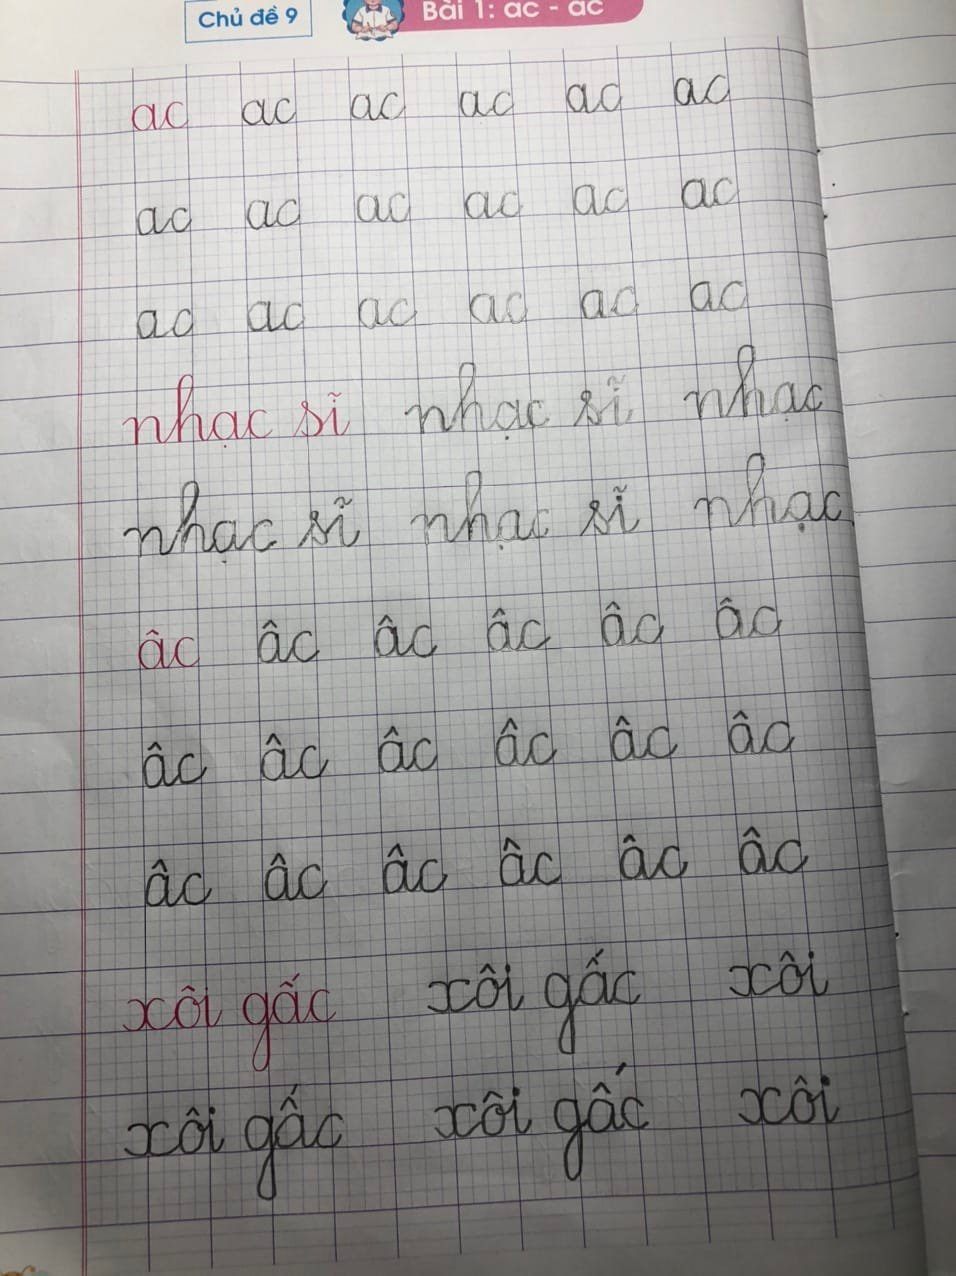 Chủ đề 9 Bài 1: ac - âc
ac ac ac ac ac ac
ac ac ac ac ac ac
ac ac ac ac ac ac
nhạc sĩ nhạc sĩ nhạc
nhạc sĩ nhạc sĩ nhạc
âc âc âc âc âc âc
âc âc âc âc âc âc
âc âc âc âc âc âc
xôi gấc xôi gấc xôi
xôi gấc xôi gấc xôi